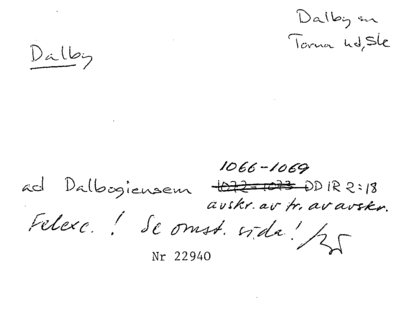 Dalby sn
Torna hd, Sk
Dalby
1066-1069
ad Dalbogiensem 1072-1073 DD IR 2:18
avskr. av tr. av avskr.
Felexc. ! Se omst. sida!
Nr 22940